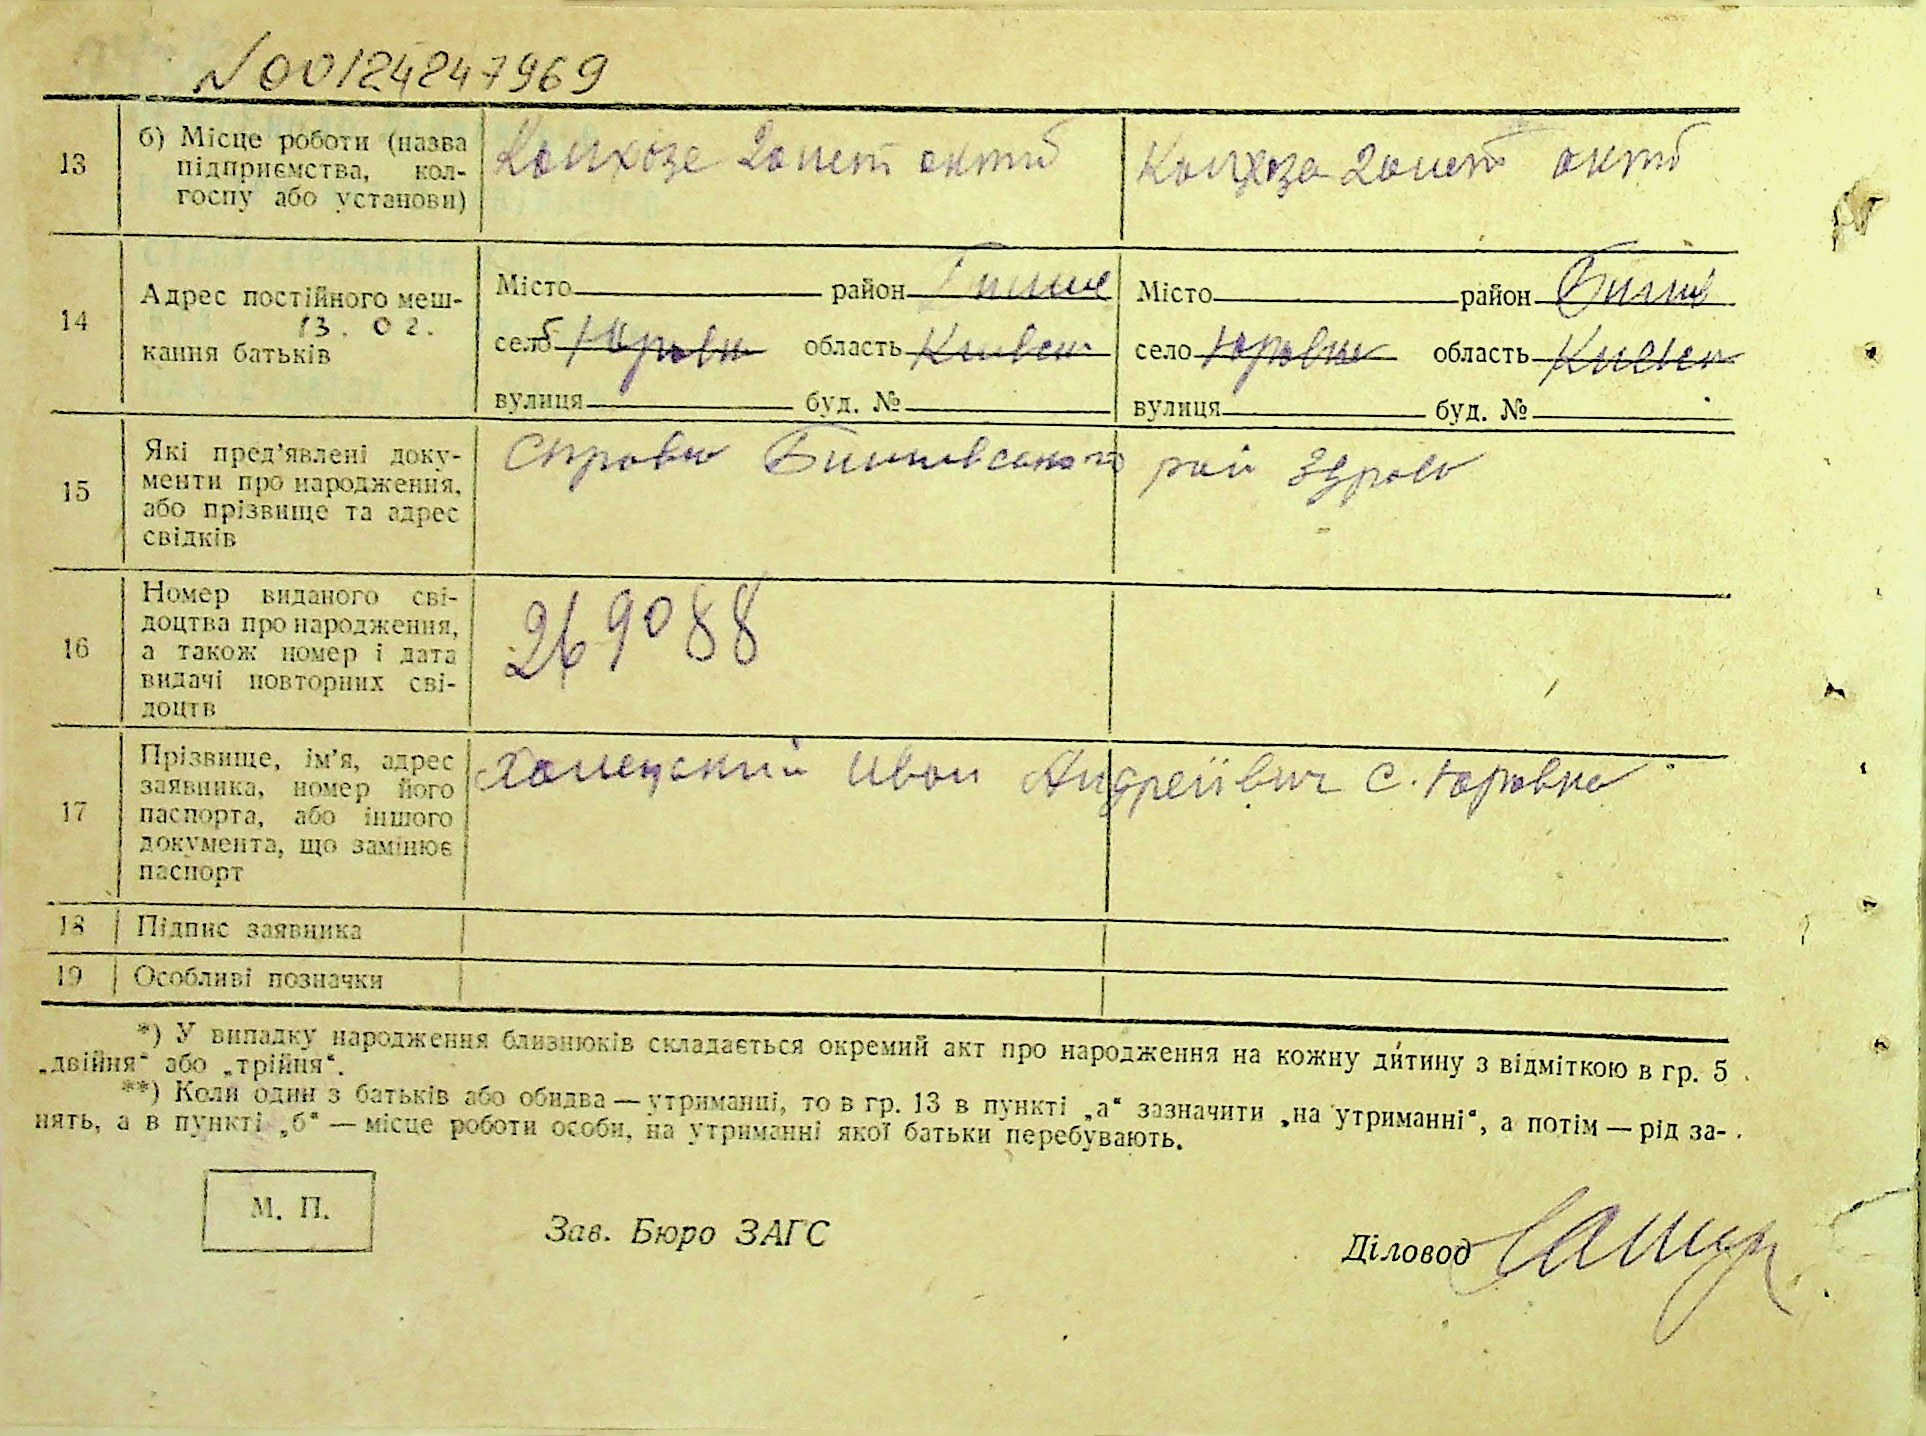 N00124247969
13
б) Місце роботи (назва
підприємства, кол-
госпу або установи)
Колхозе 20 лет октяб
Колхоза 20 лет октяб
14
Адрес постійного меш-
13.02.
кання батьків
Місто район
село Юровка область Киевск
вулиця буд. №
Місто район Бишів
село Юровка область Киевск
вулиця буд. №
15
Які пред’явлені доку-
менти про народження,
або прізвище та адрес
свідків
Справка Бишивського рай здрав
16
Номер виданого сві-
доцтва про народження,
а також номер і дата
видачі повторних сві-
доцтв
269088
17
Прізвище, ім’я, адрес
заявника, номер його
паспорта, або іншого
документа, що замінює
паспорт
Иван Андреївич с. Юровка
18
Підпис заявника
19
Особливі позначки
*) У випадку народження близнюків складається окремий акт про народження на кожну дитину з відміткою в гр. 5
„двійня“ або „трійня“.
**) Коли один з батьків або обидва — утриманці, то в гр. 13 в пункті „а“ зазначити „на утриманні“, а потім — рід за-
нять, а в пункті „б“ — місце роботи особи, на утриманні якої батьки перебувають.
М. П.
Зав. Бюро ЗАГС
Діловод